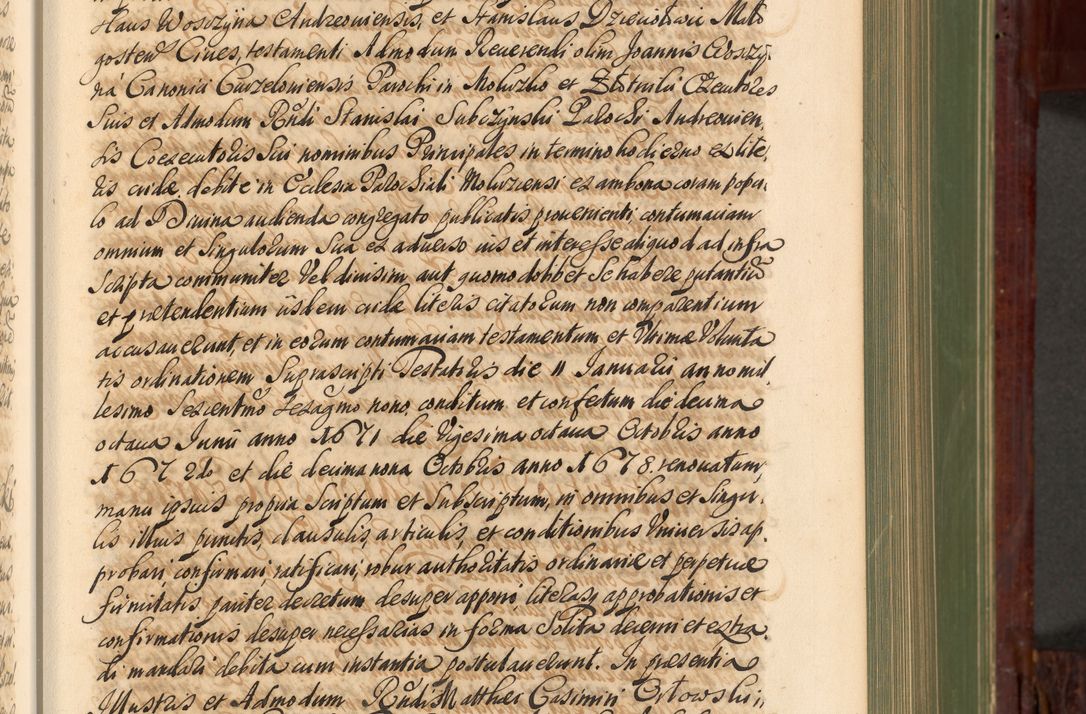 Haus Woszyna Andreouiensis, et Stanislaus Dzieciolowic Malo
gosten. Ciues, testamenti Admodum Reuerendi olim Joannis Woszy,
na Canonici Curzelouiensis Parochi in Moluzko et Executores
Suis et Admodum Rndi Stanislai Sobczynski Parochi Andreouien,
sis Coexecutoris Sui nominibus Principales in termino hodierno ex lite,
ris eride debite in Ecclesia Parochiali Moluziensi ex ambona coram popu,
lo ad Diuina audienda congregato publicatis proueniienti contumaciam
omnium et Singulorum Sua ex aduerso ius et interesse aliquod ad infra
Scripta communiter Vel diuisim aut quomodobbet Se habere putantiu
et prætendentium iisdem eride literis citatorum non comparentium
accusauerunt, et in eorum contumaciam testamentum et Vltimæ Volunta
tis ordinationem Suprascripti Testatoris die 11 Januarii anno mil
lesimo Sexcentmo sexagmo nono, conditum et confectum die decima
octaua Junii anno 1671 die Vigesima octaua Octobris anno
1672do et die decima nona Octobris anno 1678. renouatum,
manu ipsius propria Scriptum et Subscriptum, in omnibus et Singu,
lis illius punctis, clausulis, articulis, et conditionibus Vniuersis ap,
probari confirmari ratificari, robur authoritatis ordinariæ et perpetuæ
firmitatis pariter decretum desuper apponi literasq approbationis et
confirmationis desuper necessarias in forma Solita decerni et extra
di mandari debita cum instantia postulauerunt. In præsentia
Illustris et Admodum Rndi Matthæi Casimiri Orlowski,